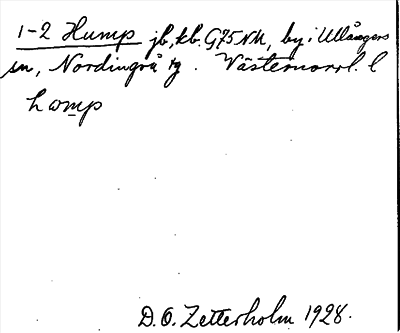 1-2 Hump jb, kb. G75NM, by i Ullångers
sn, Nordingrå tg. Västernorrl. l
hωmp
D. O. Zetterholm 1928.